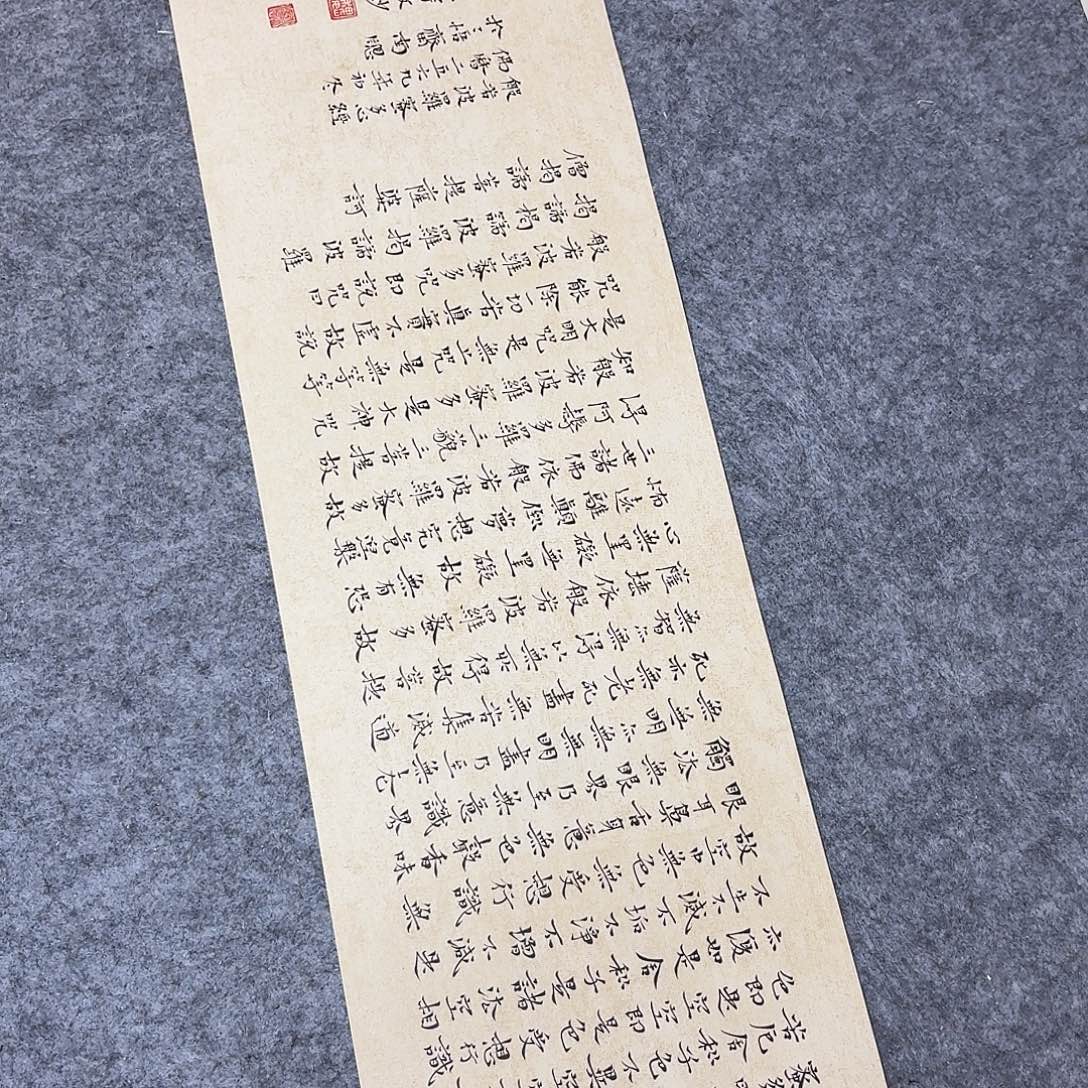 苦厄舍利子色不異空
色即是空空即是色受想行識
亦復如是舍利子是諸法空相
不生不滅不垢不淨不增不減是
故空中無色無受想行識無
眼耳鼻舌身意無色聲香味
觸法無眼界乃至無意識界
無無明亦無無明盡乃至無老
死亦無老死盡無苦集滅道
無智亦無得以無所得故菩提
薩埵依般若波羅蜜多故
心無罣礙無罣礙故無有恐
怖遠離顛倒夢想究竟涅槃
三世諸佛依般若波羅蜜多故
得阿耨多羅三藐三菩提故
知般若波羅蜜多是大神咒
是大明咒是無上咒是無等等
咒能除一切苦真實不虛故說
般若波羅蜜多咒即說咒曰
揭諦揭諦波羅揭諦波羅
僧揭諦菩提薩婆訶
般若波羅蜜多心經
佛曆二五六九年初冬
於悟齋南